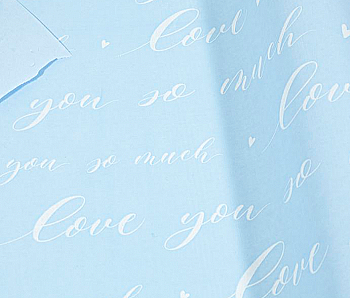 love
you so much
love
you so much
love you so
love